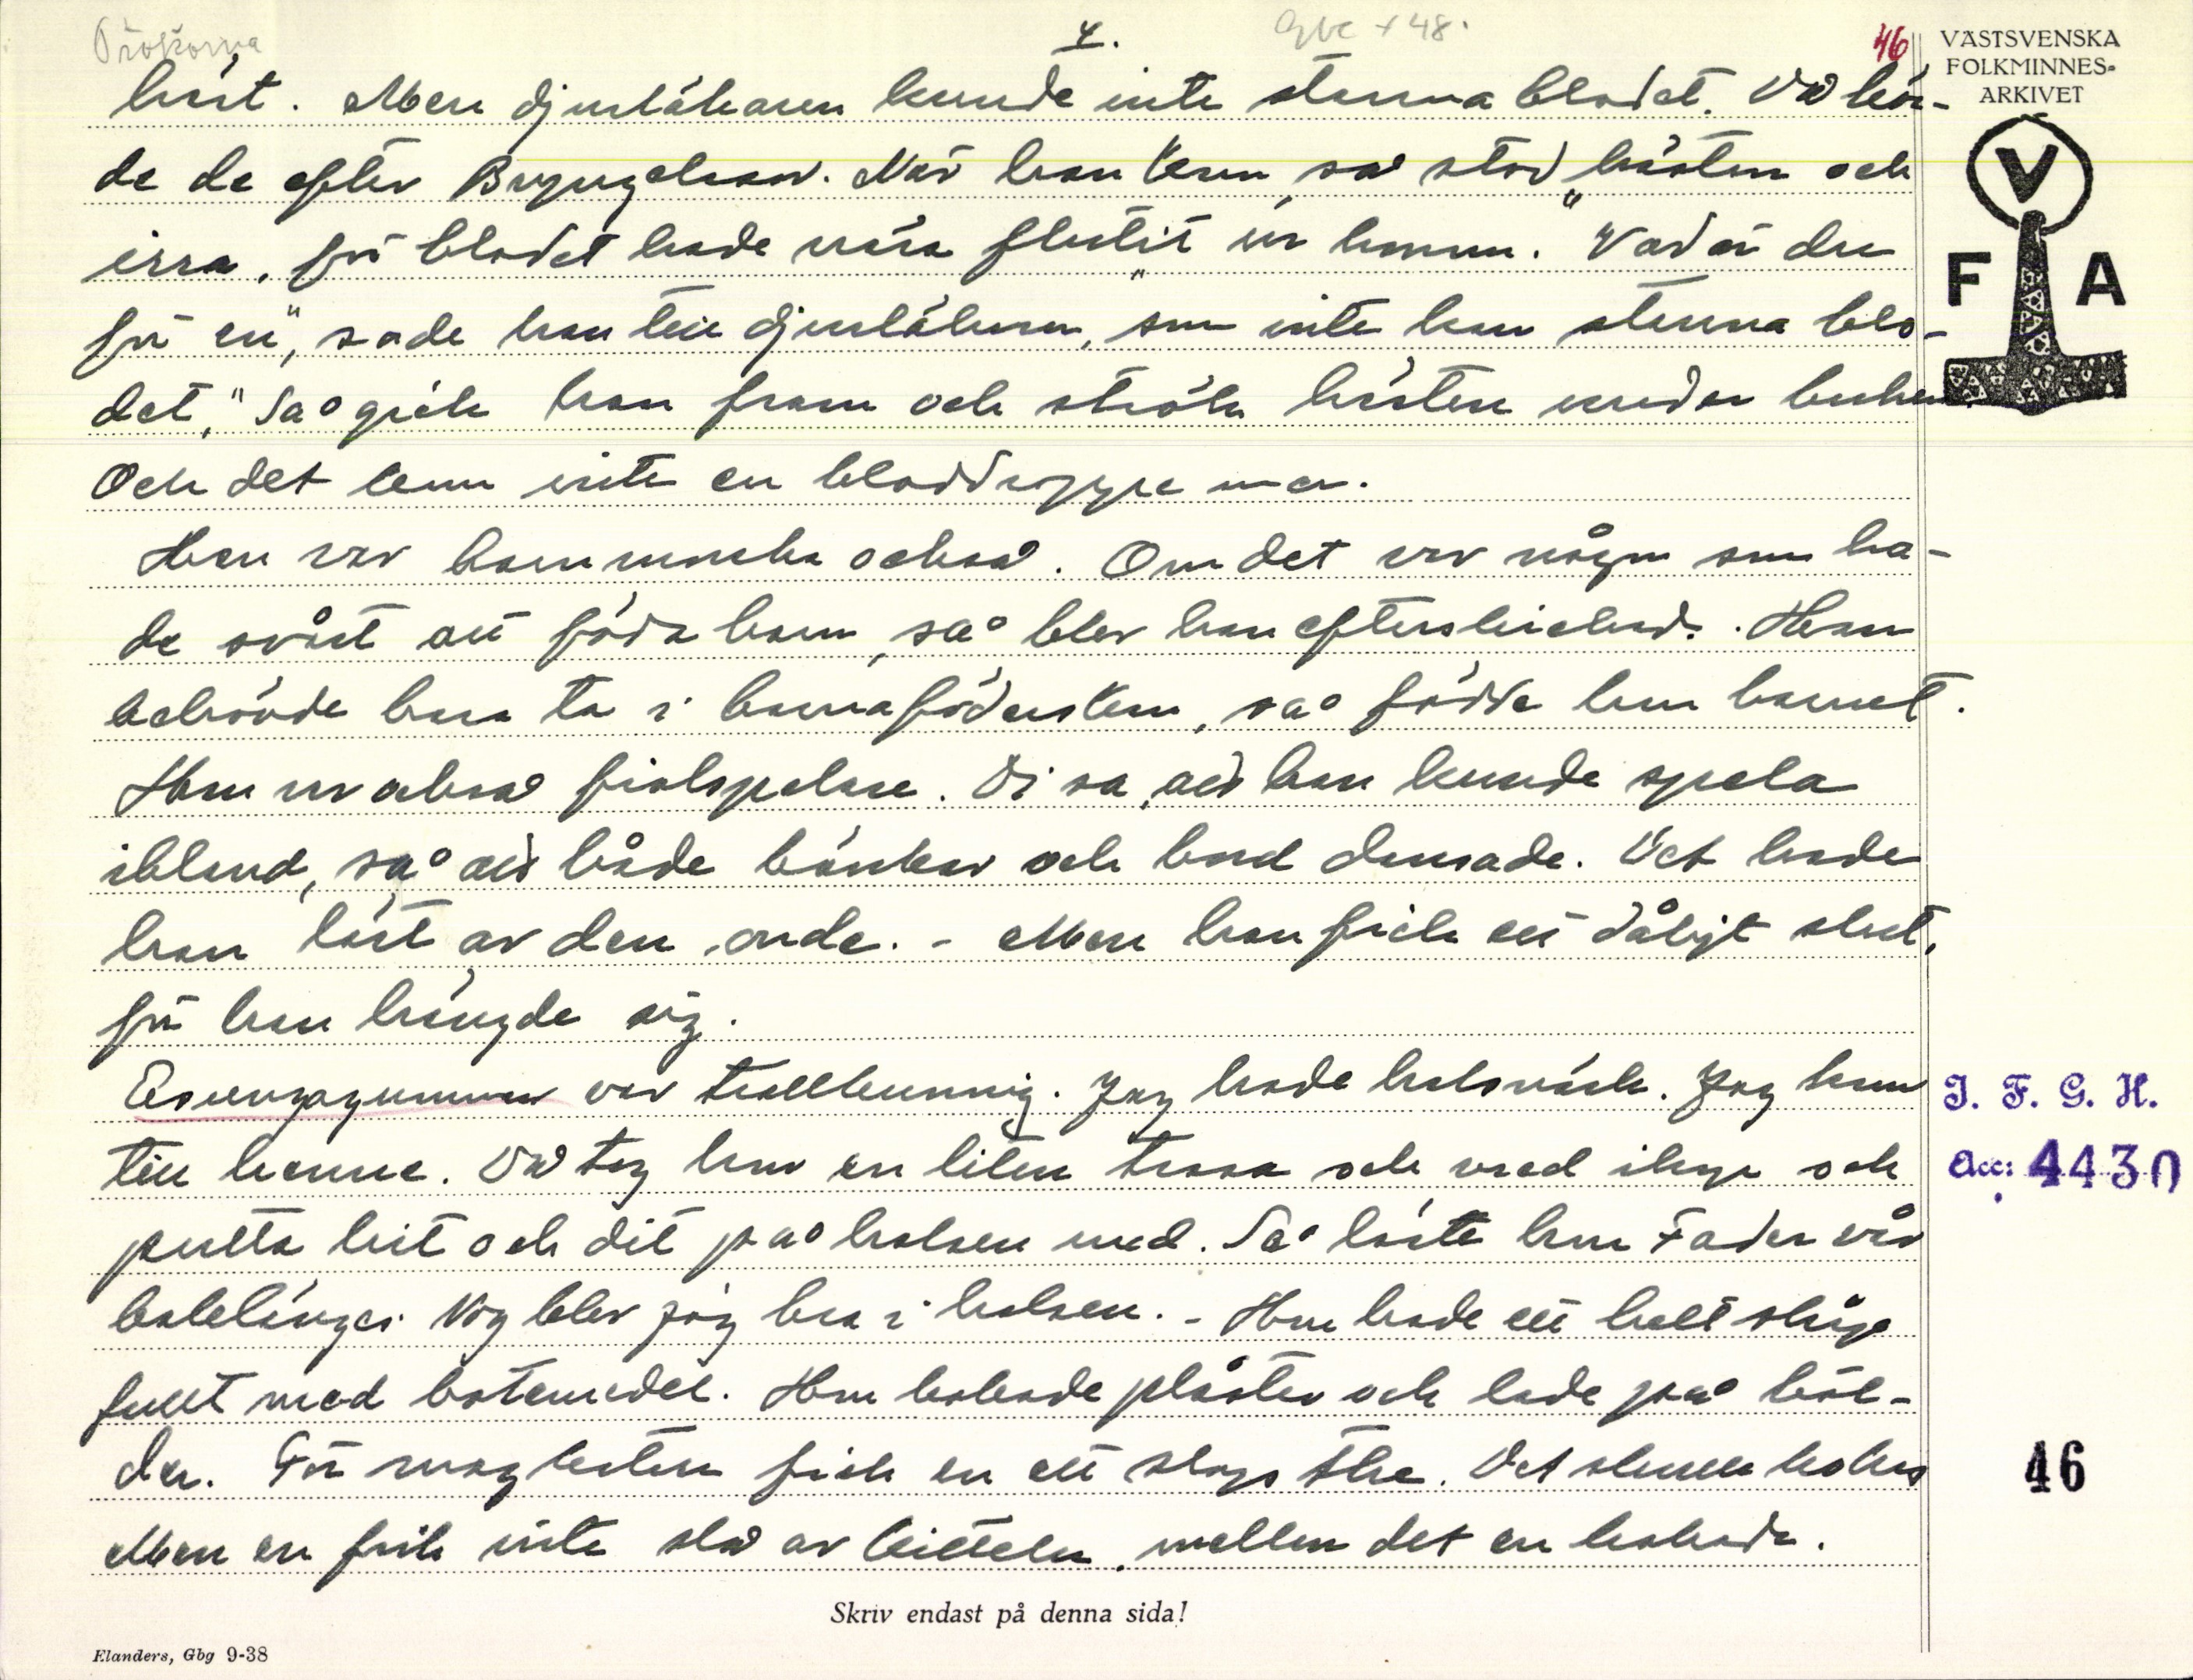 4.
46
VÄSTSVENSKA
FOLKMINNES-
ARKIVET
häst. Men djurläkaren kunde inte stanna blodet. Då kör-
de de efter Bryngelsson. När han kom, så stod hästen och
irra, för blodet hade nära flutit ur honom. "Vad är du
för en", sade han till djurläkaren, "som inte kan stanna blo-
det," Så gick han fram och strök hästen under buken.
Och det kom inte en bloddroppe mer.
Han var barnmorska också. Om det var någon som ha-
de svårt att föda barn, så blev han efterskickad. Han
behövde bara ta i barnaföderskan, så födde hon barnet.
Han var också fiolspelare. Di sa, att han kunde spela
ibland, så att både bänkar och bord dansade. Det hade
han lärt av den onde. - Men han fick ett dåligt slut,
för han hängde sig.
var trollkunnig. Jag hade halsvärk. Jag kom
till henne. Då tog hon en liten trasa och vred ihop och
putta hit och dit på halsen med. Så läste hon Fader vår
baklänges. Nog blev jag bra i halsen. - Hon hade ett helt skåp
fullt med botemedel. Hon kokade plåster och lade på böl-
der. För magkatarr fick en ett slags the. Det skulle kokas
Men en fick inte slå av kitteln, mellan det en kokade.
V
F A
I. F. G. H.
Acc: 4430
46
Skriv endast på denna sida!
Elanders, Gbg 9-38